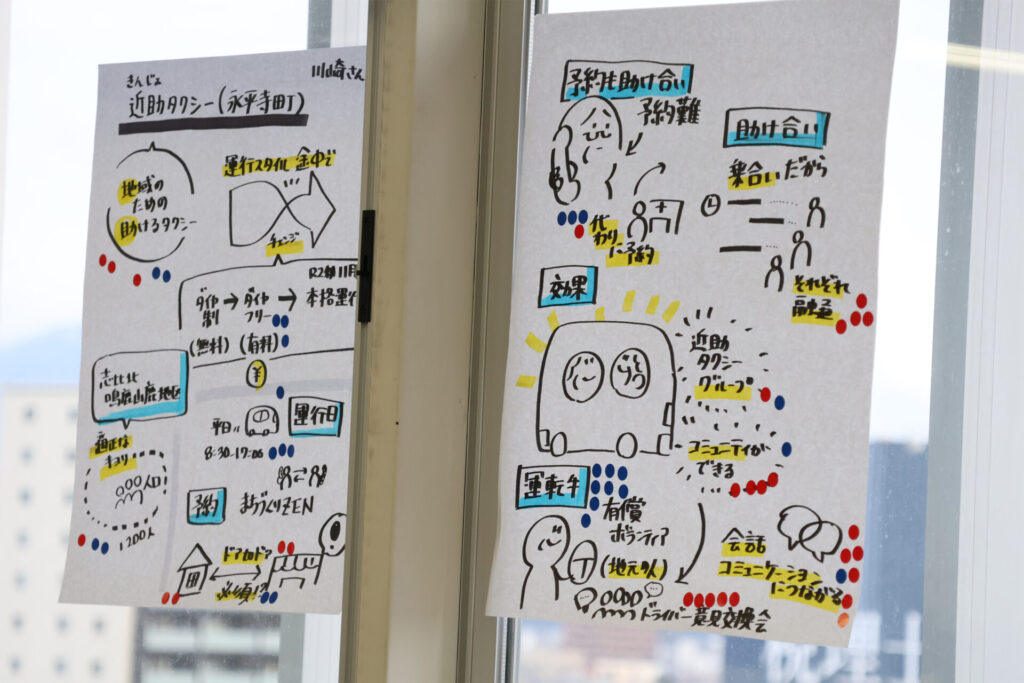 きんじょ
近助タクシー(永平寺町)
川崎さん
地域の
ための
助けるタクシー
運行スタイル 途中で
チェンジ
R2年11月
ダイヤ
制
→
ダイヤ
フリー
→
本格運行
(無料)
(有料)
¥
志比北
鳴鹿山鹿地区
適正な
キョリ
人口
1200人
運行日
平日
8:30-17:00
予約
まちづくりZEN
ドアtoドア
必須!?
予約も助け合い
予約難
代
わり
に予約
助け合い
乗合いだから
それぞれ
融通
効果
近助
タクシー
グループ
コミュニティが
できる
運転手
有償
ボランティア
(地元の人)
ドライバー意見交換会
会話
コミュニケーション
につながる